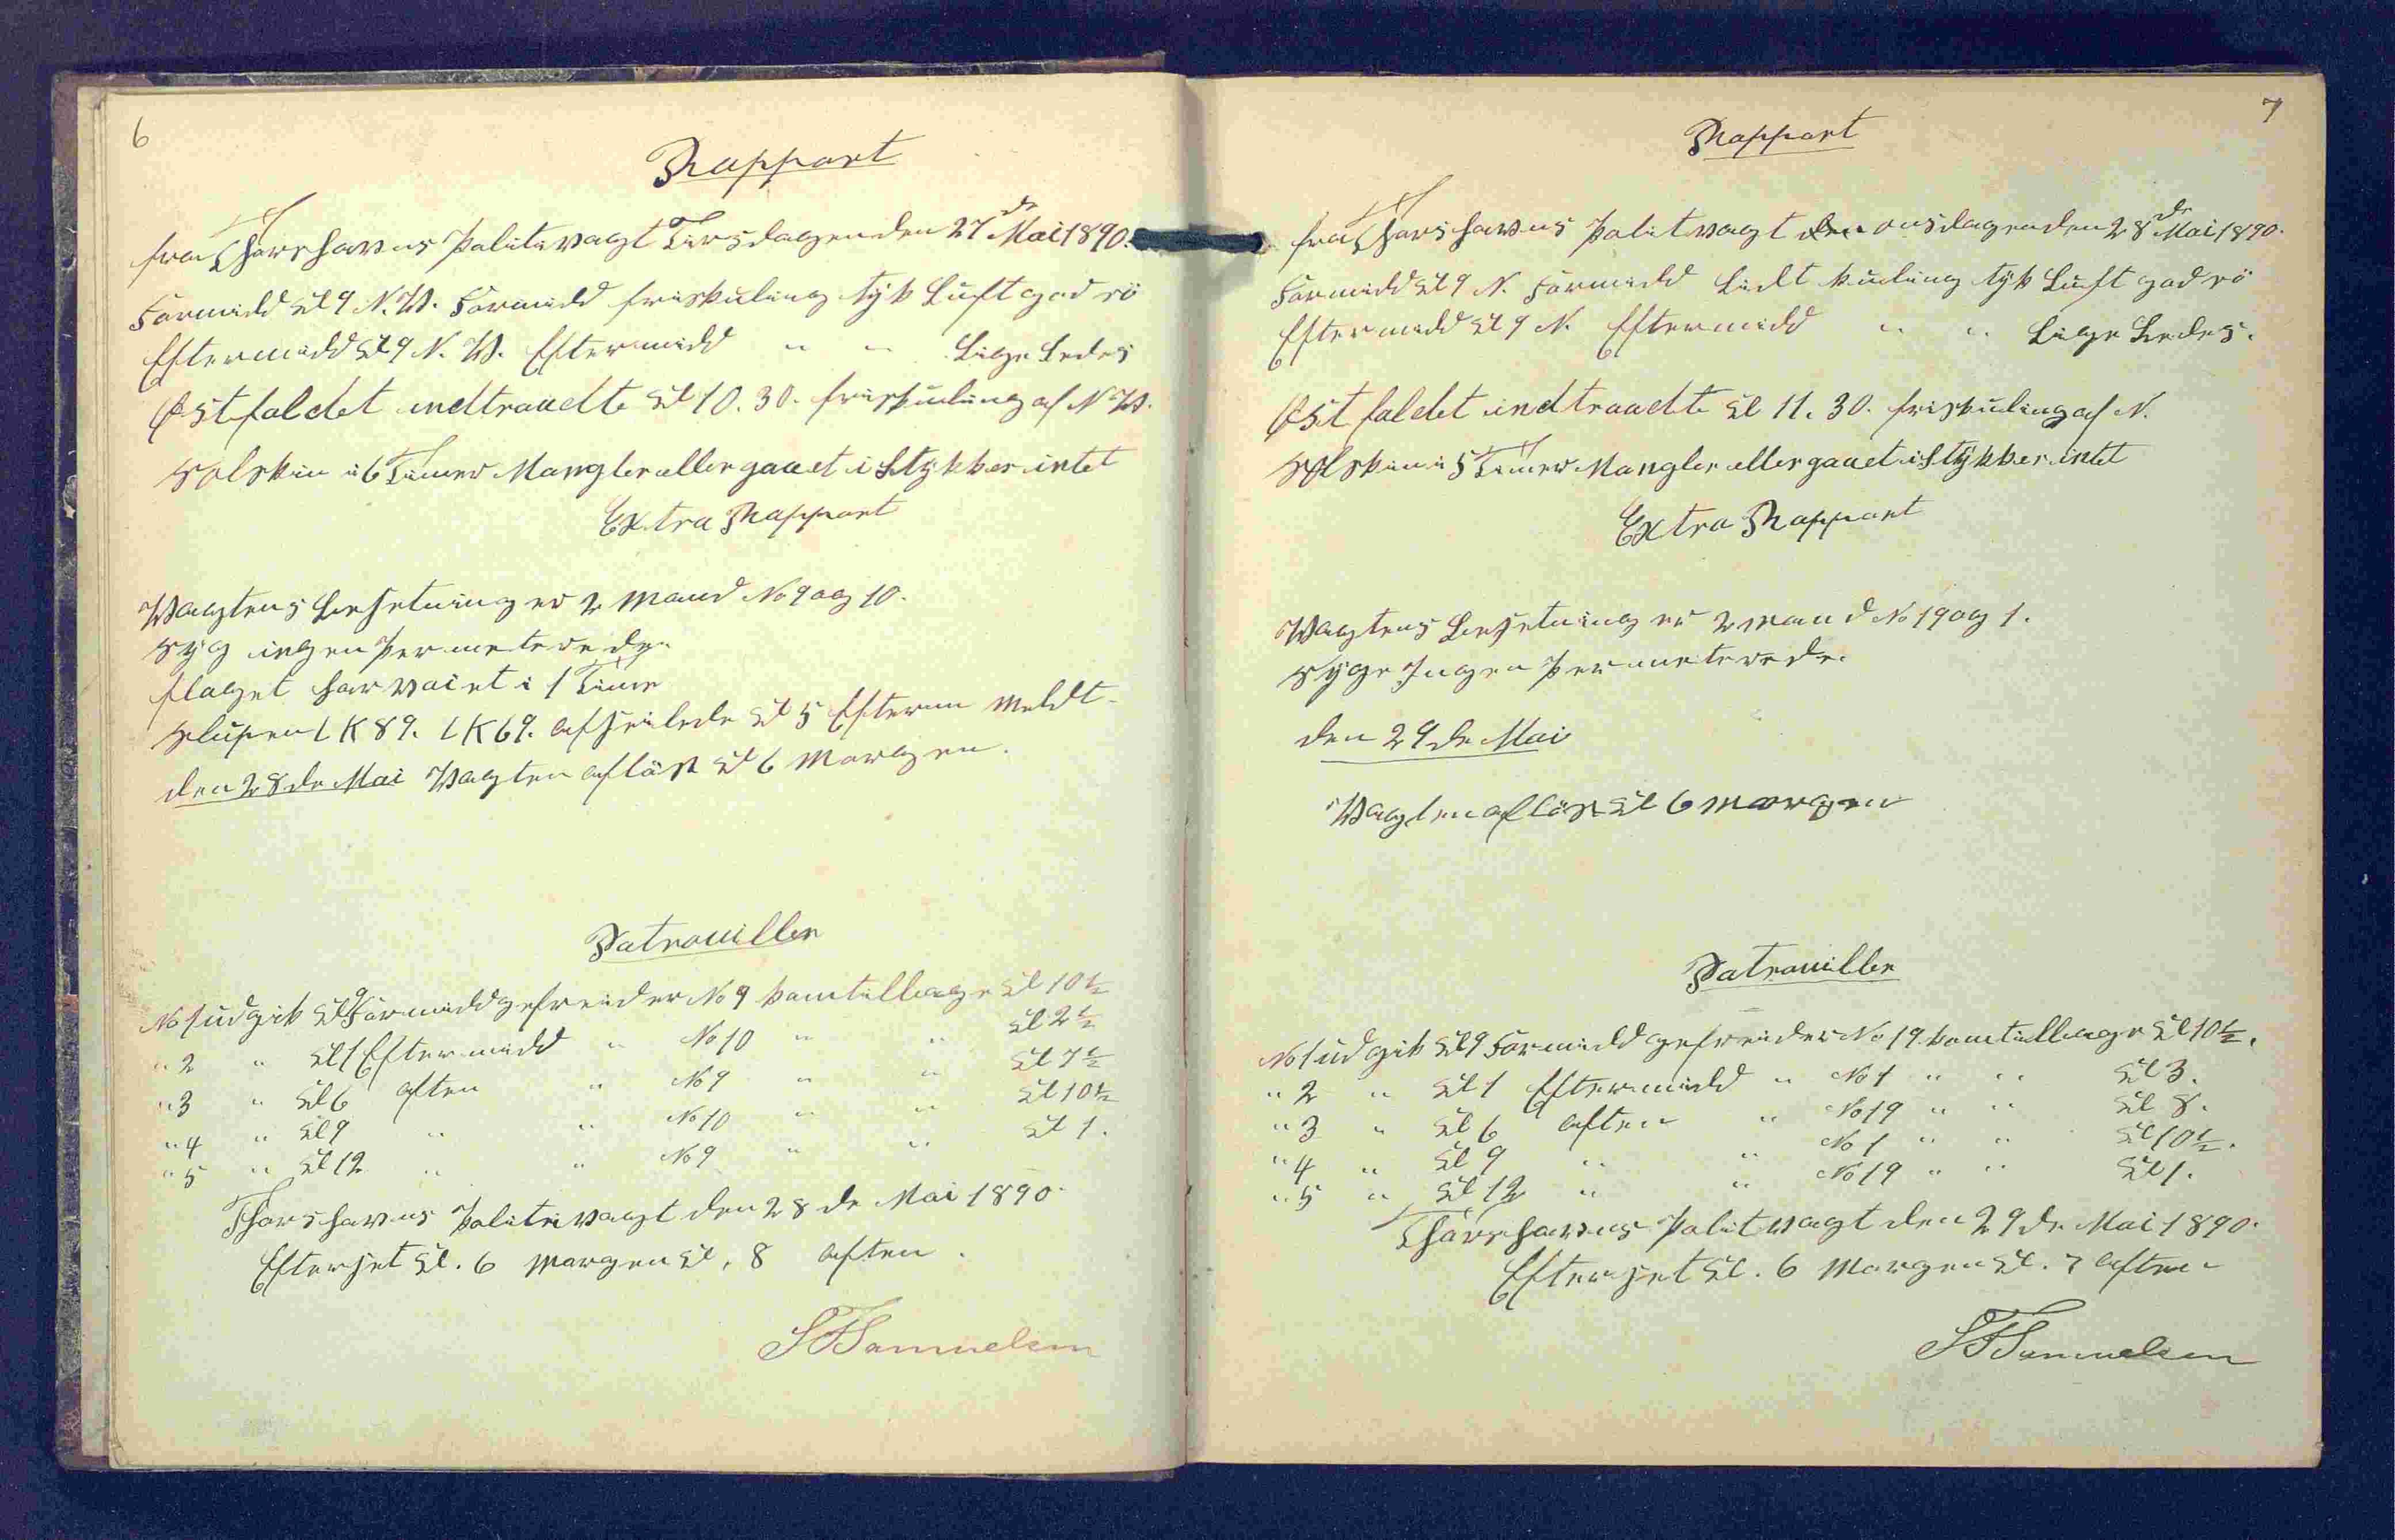 6
Rapport
fra Thorshavns Politivagt Tirsdagen den 27de Mai 1890.
Formidd Kl 9 N.W. Formidd friskuling tyk Luft god rö
Eftermidd Kl 9 N.W. Eftermidd " " Lige Ledes
Østfaldet indtraadte Kl 10.30. friskuling af N W.
Solskin i 6 Timer Mangler eller gaaet i Stykker intet
Extra Rapport
Wagtens Besetning er 2 Mand No 9 og 10.
Syg ingen Permeterede.
flaget har vaiet i 1 Time
Slupen LK 89. LK 69. afseilede Kl 5 Efterm Meldt
den 28de Mai Wagten aflöst Kl 6 Morgen.
Patrouiller
No 1 udgik Kl 9 Formidd gefreider No 9 kom tilbage Kl 10½
" 2 " Kl 1 Eftermidd " No 10 " " Kl 2½
" 3 " Kl 6 Aften " No 9 " " Kl 7½
" 4 " Kl 9 " " No 10 " " Kl 10½
" 5 " Kl 12 " " No 9 " " Kl 1.
Thorshavns Politivagt den 28de Mai 1890.
Efterset Kl. 6 Morgen Kl. 8 Aften.
Samuelsen
7
Rapport
fra Thorshavns Politvagt den onsdagen den 28de Mai 1890.
Formidd Kl 9 N. Formidd Lidt kuling tyk Luft god rö
Eftermidd Kl 9 N. Eftermidd " " Lige Ledes.
Østfaldet indtraadte Kl 11.30. friskuling af N.
Solskin i 5 Timer Mangler eller gaaet i Stykker intet
Extra Rapport
Wagtens Besetning er 2 Mand No 19 og 1.
Syge Ingen Permeterede.
den 29de Mai
Wagten aflöst Kl 6 Morgen
Patrouiller
No 1 udgik Kl 9 Formidd gefreider No 19 kom tilbage Kl 10½.
" 2 " Kl 1 Eftermidd " No 1 " " Kl 3.
" 3 " Kl 6 Aften " No 19 " " Kl 8.
" 4 " Kl 9 " " No 1 " " Kl 10½.
" 5 " Kl 12 " " No 19 " " Kl 1.
Thorshavns Politvagt den 29de Mai 1890.
Efterset Kl. 6 Morgen Kl. 7 Aften
Samuelsen